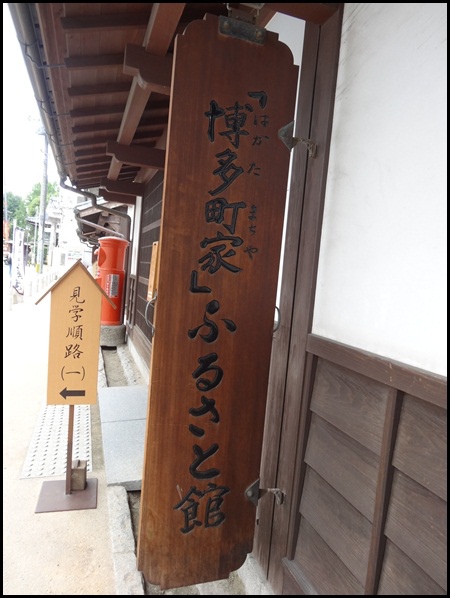 「博多町家」ふるさと館
はかた まちや
見学順路
(一)
←